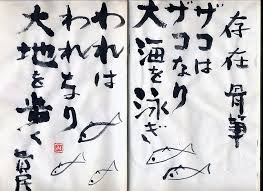 存在 骨筆
ザコは
ザコなり
大海を泳ぎ
われは
われなり
大地を歩く